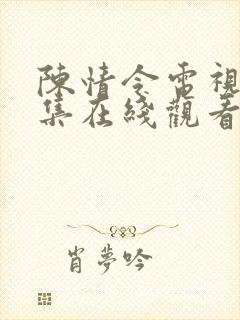 陳情令電視
集在綫觀看
肖夢吟